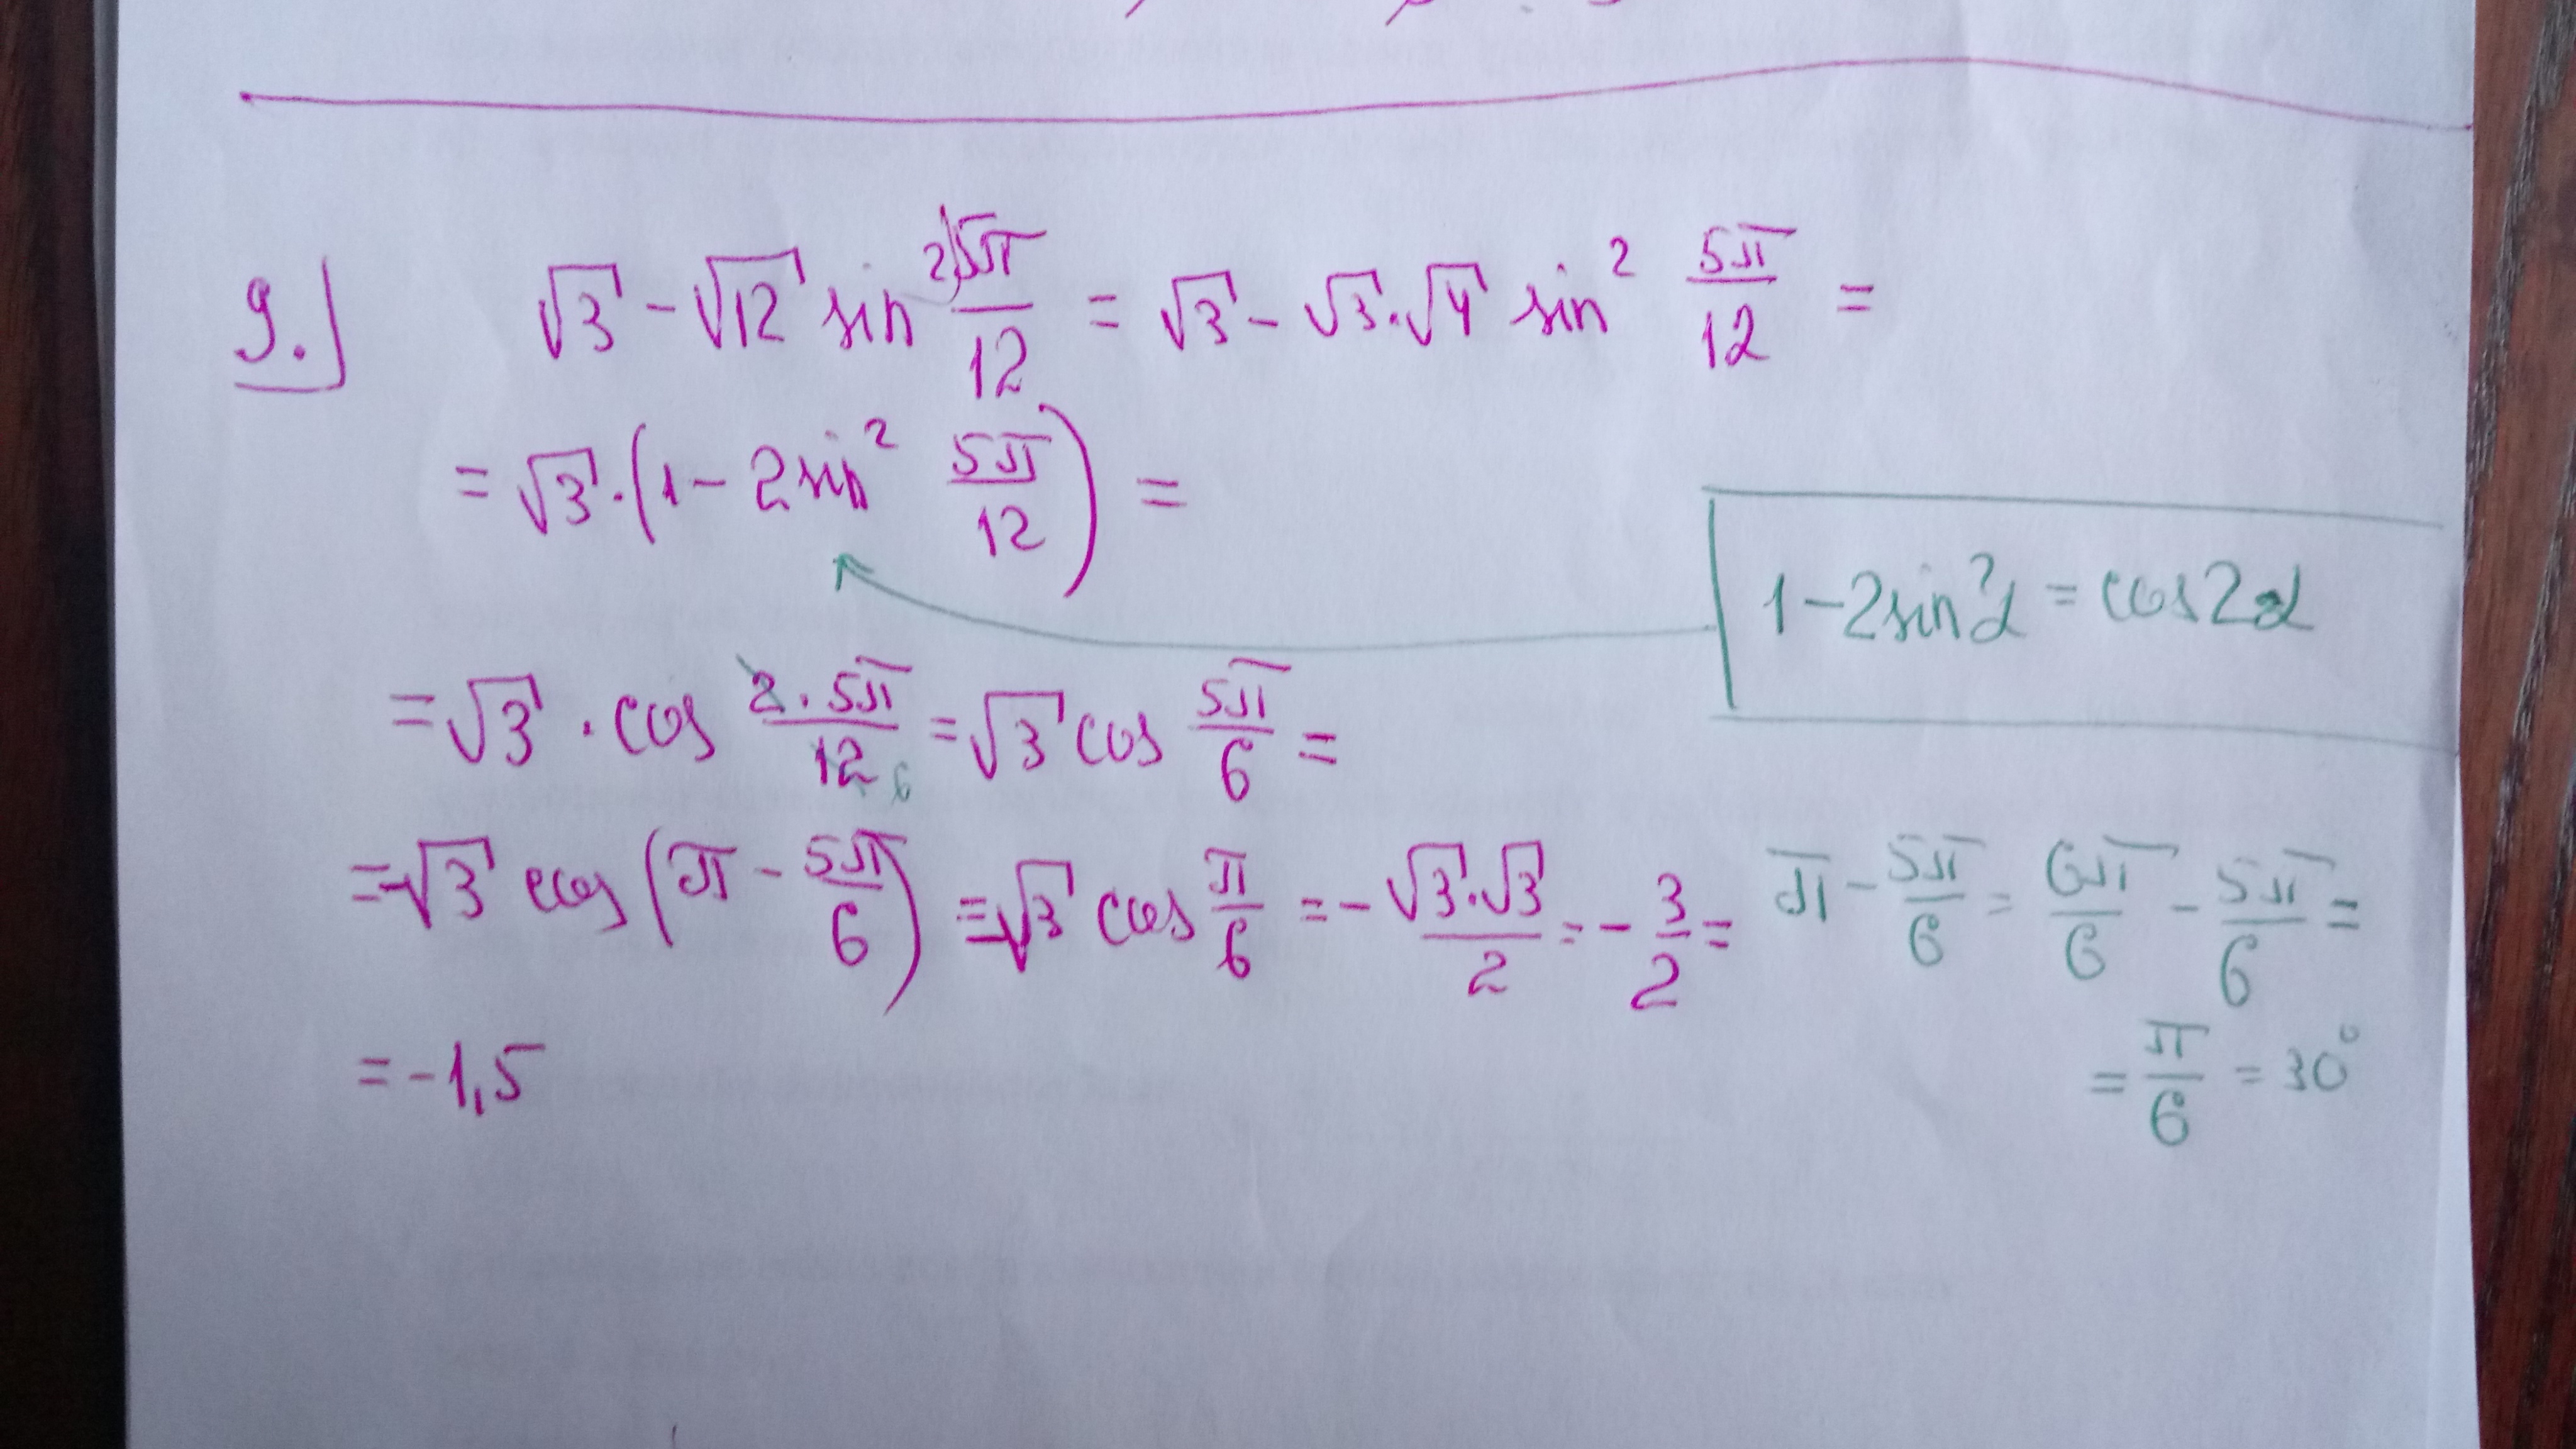 9.) √3 - √12 sin² 5π/12 = √3 - √3·√4 sin² 5π/12 =
= √3·(1 - 2sin² 5π/12) =
1 - 2sin²α = cos2α
= √3 · cos 2·5π/12 6 = √3 cos 5π/6 =
= -√3 cos(π - 5π/6) = -√3 cos π/6 = - √3·√3/2 = - 3/2 =
π - 5π/6 = 6π/6 - 5π/6 =
= π/6 = 30°
= -1,5